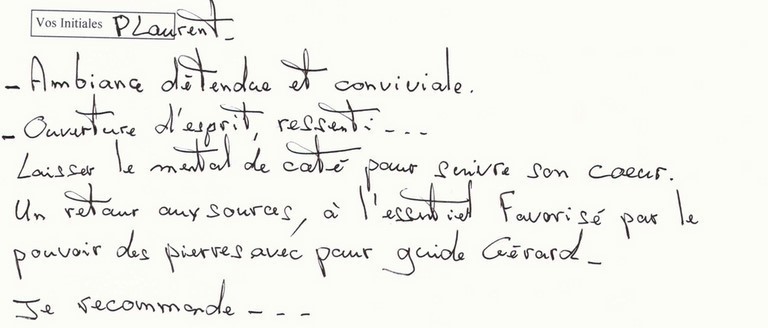 Vos Initiales PLaurent.
- Ambiance détendue et conviviale.
- Ouverture d'esprit, ressenti ---
Laisser le mental de coté pour suivre son coeur.
Un retour aux sources, à l'essentiel Favorisé par le
pouvoir des pierres avec pour guide Gérard_
Je recommande ---